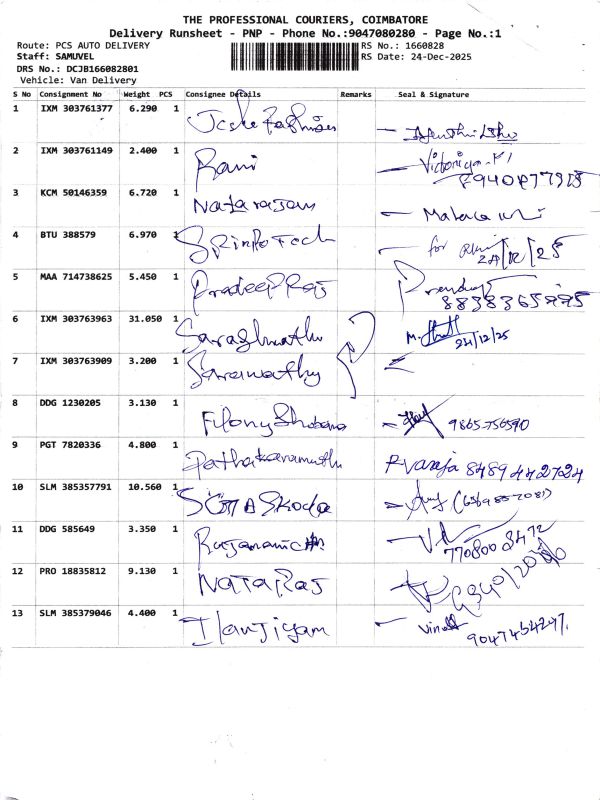 THE PROFESSIONAL COURIERS, COIMBATORE
Delivery Runsheet - PNP - Phone No.:9047080280 - Page No.:1
Route: PCS AUTO DELIVERY
RS No.: 1660828
Staff: SAMUVEL
RS Date: 24-Dec-2025
DRS No.: DCJB166082801
Vehicle: Van Delivery
S No Consignment No Weight PCS Consignee Details Remarks Seal & Signature
1 IXM 303761377 6.290 1
2 IXM 303761149 2.400 1 Rani
3 KCM 50146359 6.720 1 Natarajan
4 BTU 388579 6.970 1 for 24/12/25
5 MAA 714738625 5.450 1 Pradeep Raj 8838365995
6 IXM 303763963 31.050 1 24/12/25
7 IXM 303763909 3.200 1 Sarawathy
8 DDG 1230205 3.130 1 9865756590
9 PGT 7820336 4.800 1 R vanja 8489442724
10 SLM 385357791 10.560 1 Skoda
11 DDG 585649 3.350 1
12 PRO 18835812 9.130 1 NATARAJ
13 SLM 385379046 4.400 1 Ilanjiyam 9047454247.